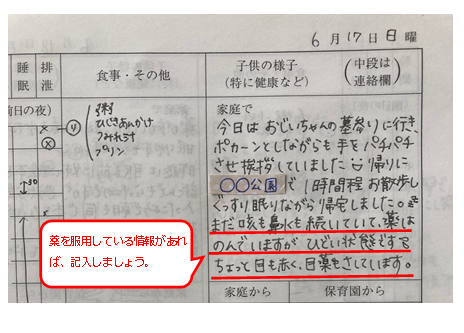 6月17日日曜
睡眠
排泄
食事・その他
子供の様子
(特に健康など)
(中段は連絡欄)
前日の夜)
粥
ひじきあんかけ
つみれ汁
プリン
↓30
家庭で
今日はおじいちゃんの墓参りに行き、
ポカーンとしながらも手をパチパチ
させ挨拶していました 帰りに
〇〇公園で1時間程お散歩し
ぐっすり眠りながら帰宅しました。
まだ咳も鼻水も続いていて、薬は
のんでいますがひどい状態です
ちょっと目も赤く、目薬もさしています。
薬を服用している情報があれ
ば、記入しましょう。
家庭から
保育園から